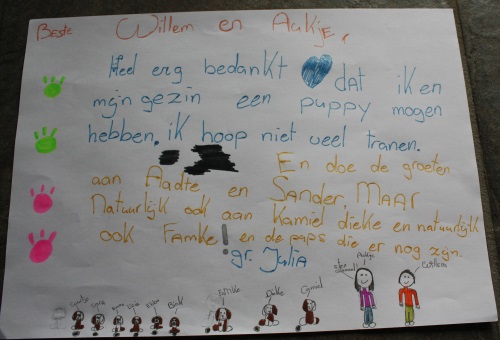 Beste Willem en Aukje,
Heel erg bedankt dat ik en
mijn gezin een puppy mogen
hebben. ik hoop niet veel tranen.
En doe de groeten
aan Aadte en Sander. Maar
Natuurlijk ook aan Kamiel diekie en natuurlijk
ook Famke! en de paps die er nog zijn.
gr. Julia
Aukje
Willem